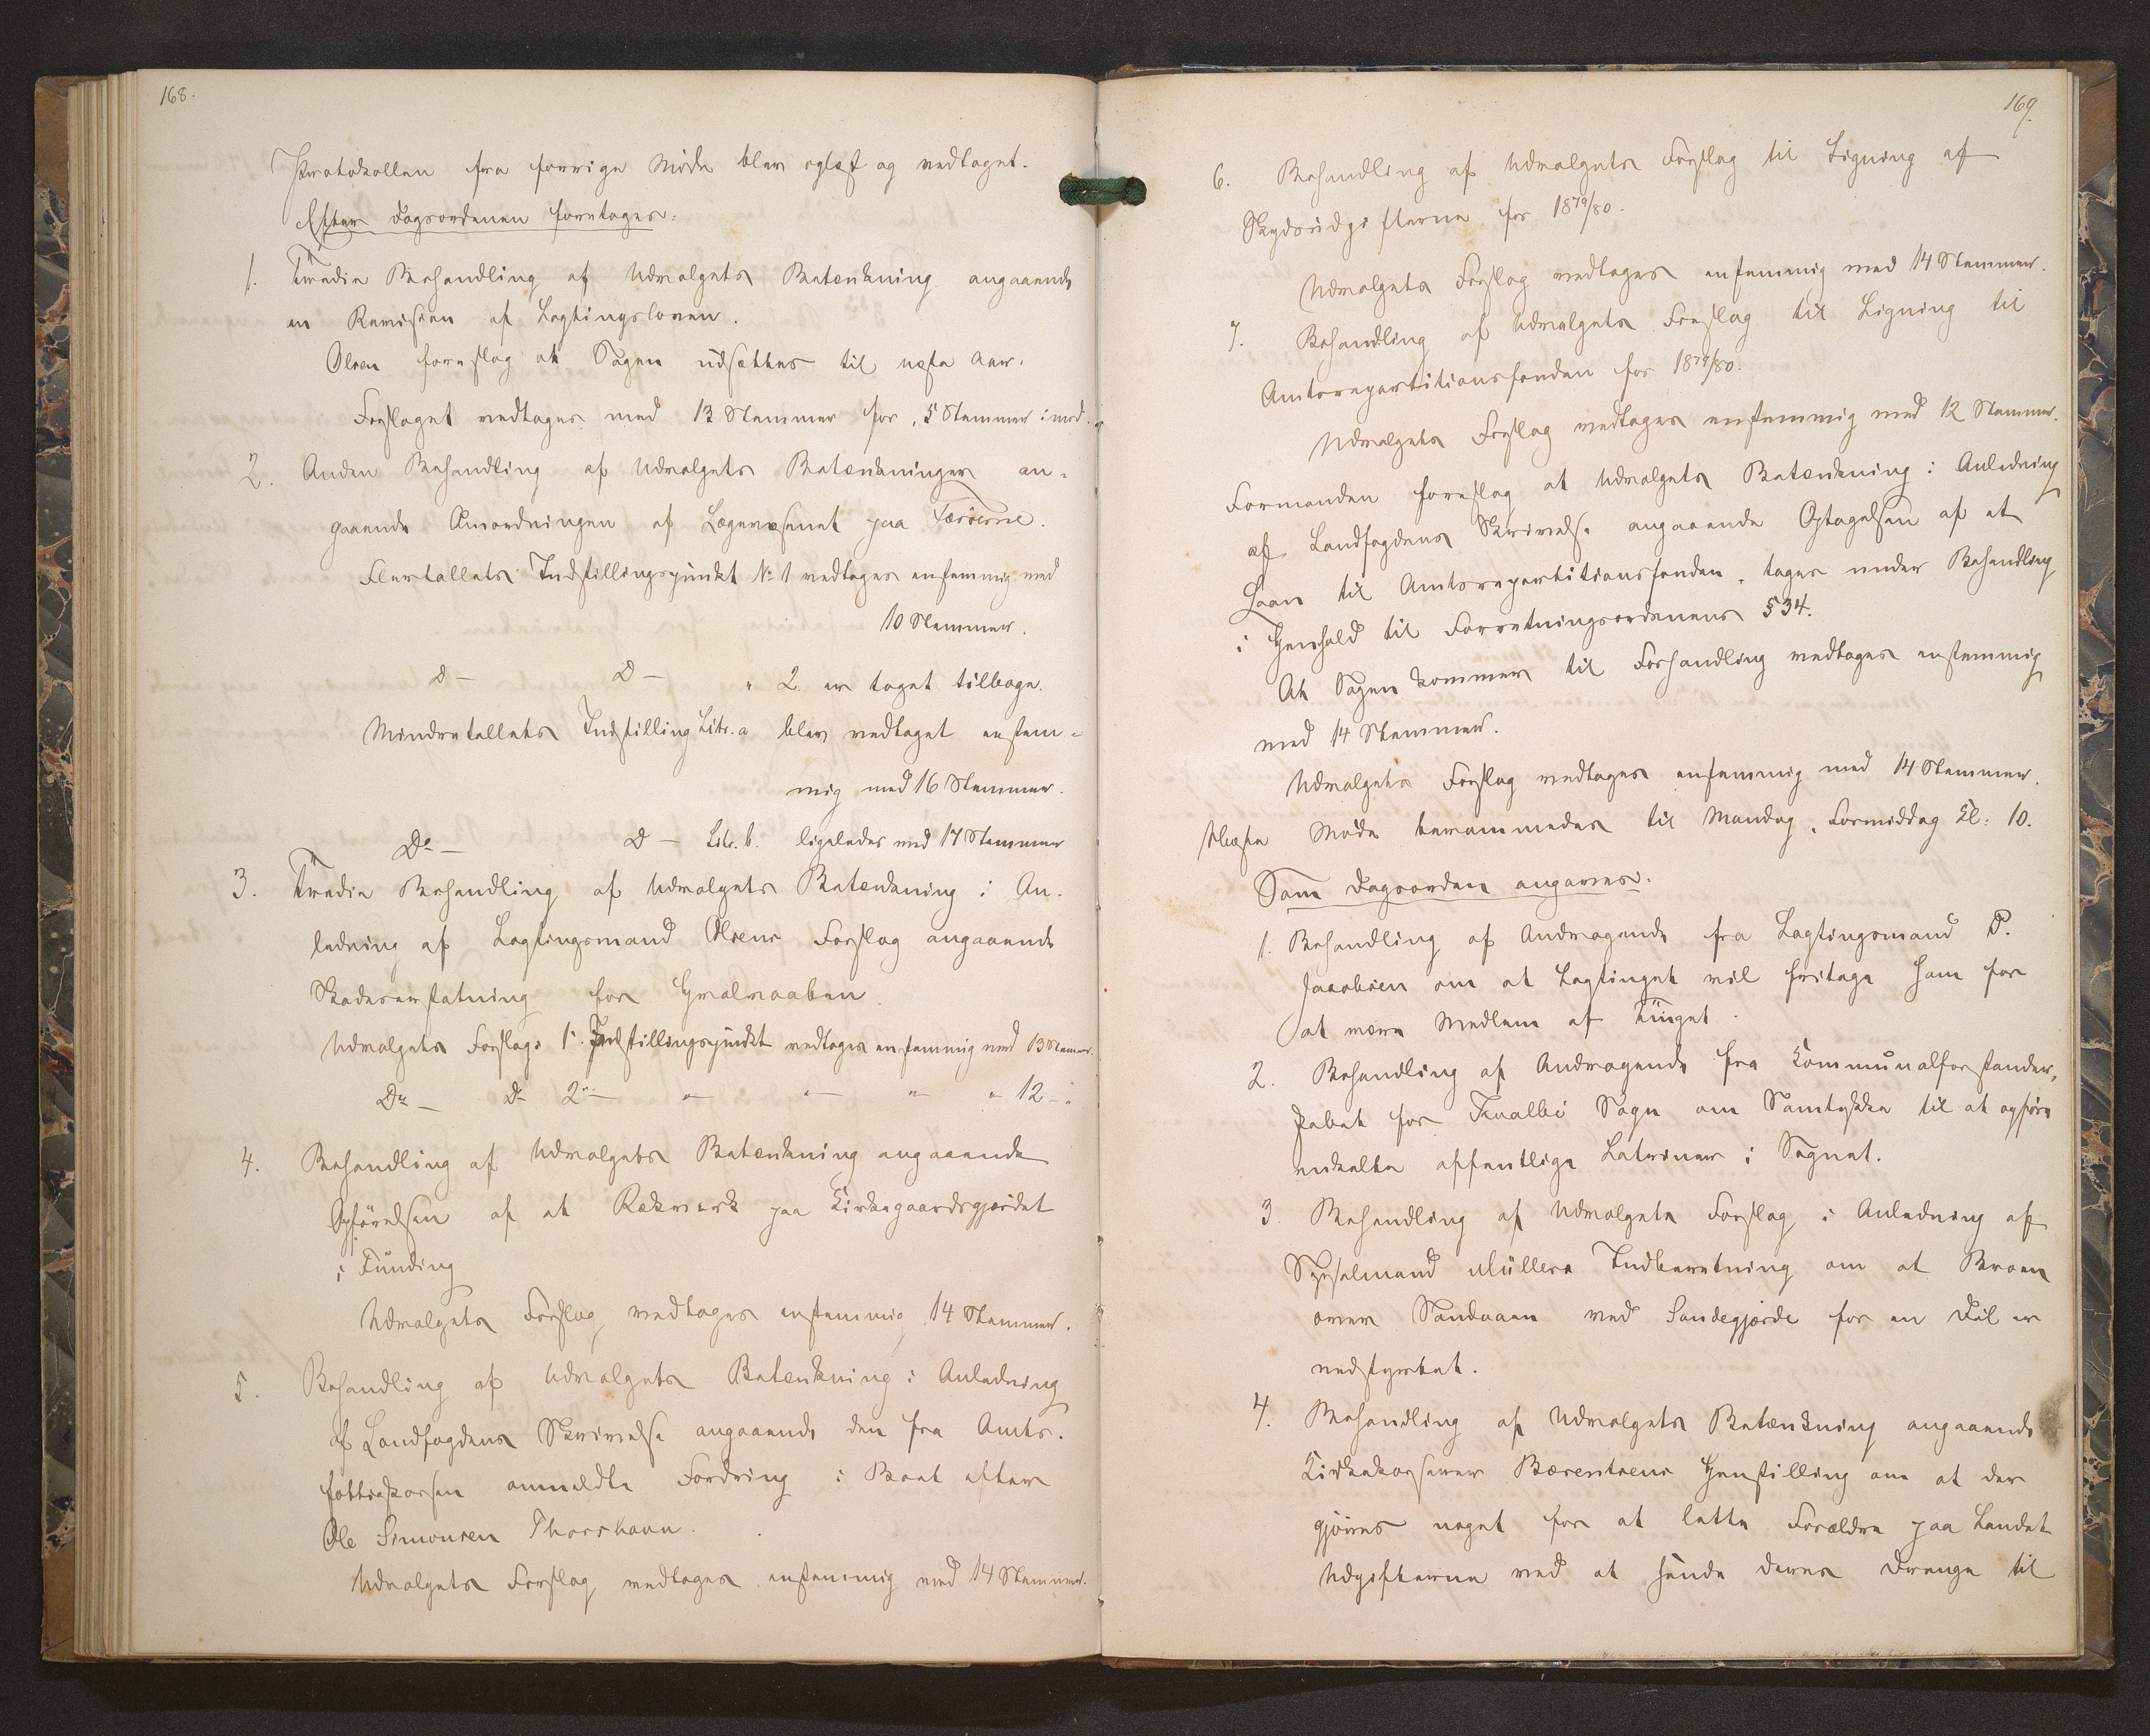 168.
Protokollen fra forrige Møde blev oplæst og vedtaget.
Efter Dagsordenen foretages:
1. Tredie Behandling af Udvalgets Betænkning angaaende
en Revision af Lagtingsloven.
Olsen foreslog at Sagen udsættes til næste Aar.
Forslaget vedtages med 13 Stemmer for, 5 Stemmer imod.
2. Anden Behandling af Udvalgets Betænkninger an-
gaaende Omordningen af Lægevæsenet paa Færøerne.
Flertallets Indstillingspunkt No 1 vedtages enstemmig med
10 Stemmer.
D — D — " 2 er taget tilbage.
Mindretallets Indstilling Litr. a blev vedtaget enstem-
mig med 16 Stemmer.
Do — D — Litr. b. ligeledes med 17 Stemmer
3. Tredie Behandling af Udvalgets Betænkning i An-
ledning af Lagtingsmand Olsens Forslag angaaende
Skadeserstatning for Hvalvaaben.
Udvalgets Forslags 1. Indstillingspunkt vedtages enstemmig med 13 Stemmer.
Do — Do 2 — " — " — " " 12 — "
4. Behandling af Udvalgets Betænkning angaaende
Opførelsen af et Rækværk paa Kirkegaardsgjærdet
i Funding
Udvalgets Forslag vedtages enstemmig 14 Stemmer.
5. Behandling af Udvalgets Betænkning i Anledning
af Landfogdens Skrivelse angaaende den fra Amts-
fattigkassen anmeldte Fordring i Boet efter
Ole Simonsen Thorshavn.
Udvalgets Forslag vedtages enstemmig med 14 Stemmer.
169.
6. Behandling af Udvalgets Forslag til Ligning af
Skydsudgifterne for 1879/80.
Udvalgets Forslag vedtages enstemmig med 14 Stemmer.
7. Behandling af Udvalgets Forslag til Ligning til
Amtsrepartitionsfonden for 1879/80.
Udvalgets Forslag vedtages enstemmig med 12 Stemmer.
Formanden foreslog at Udvalgets Betænkning i Anledning
af Landfogdens Skrivelse angaaende Optagelsen af et
Laan til Amtsrepartitionsfonden, tages under Behandling
i Henhold til Forretningsordenens § 34.
At Sagen kommer til Forhandling vedtages enstemmig
med 14 Stemmer.
Udvalgets Forslag vedtages enstemmig med 14 Stemmer.
Næste Møde berammedes til Mandag, Formiddag Kl: 10.
Som Dagsorden angaves:
1. Behandling af Andragende fra Lagtingsmand P.
Jacobsen om at Lagtinget vil fritage ham for
at være Medlem af Tinget.
2. Behandling af Andragende fra Kommunalforstander-
skabet for Kvalbø Sogn om Samtykke til at opføre
enkelte offentlige Latriner i Sognet.
3. Behandling af Udvalgets Forslag i Anledning af
Sysselmand Müllers Indberetning om at Broen
over Sandaaen ved Sandegjærde for en Del er
nedstyrtet.
4. Behandling af Udvalgets Betænkning angaaende
Kirkekasserer Bærentsens Henstilling om at der
gjøres noget for at lette Forældre paa Landet
Udgifterne ved at sende deres Drenge til